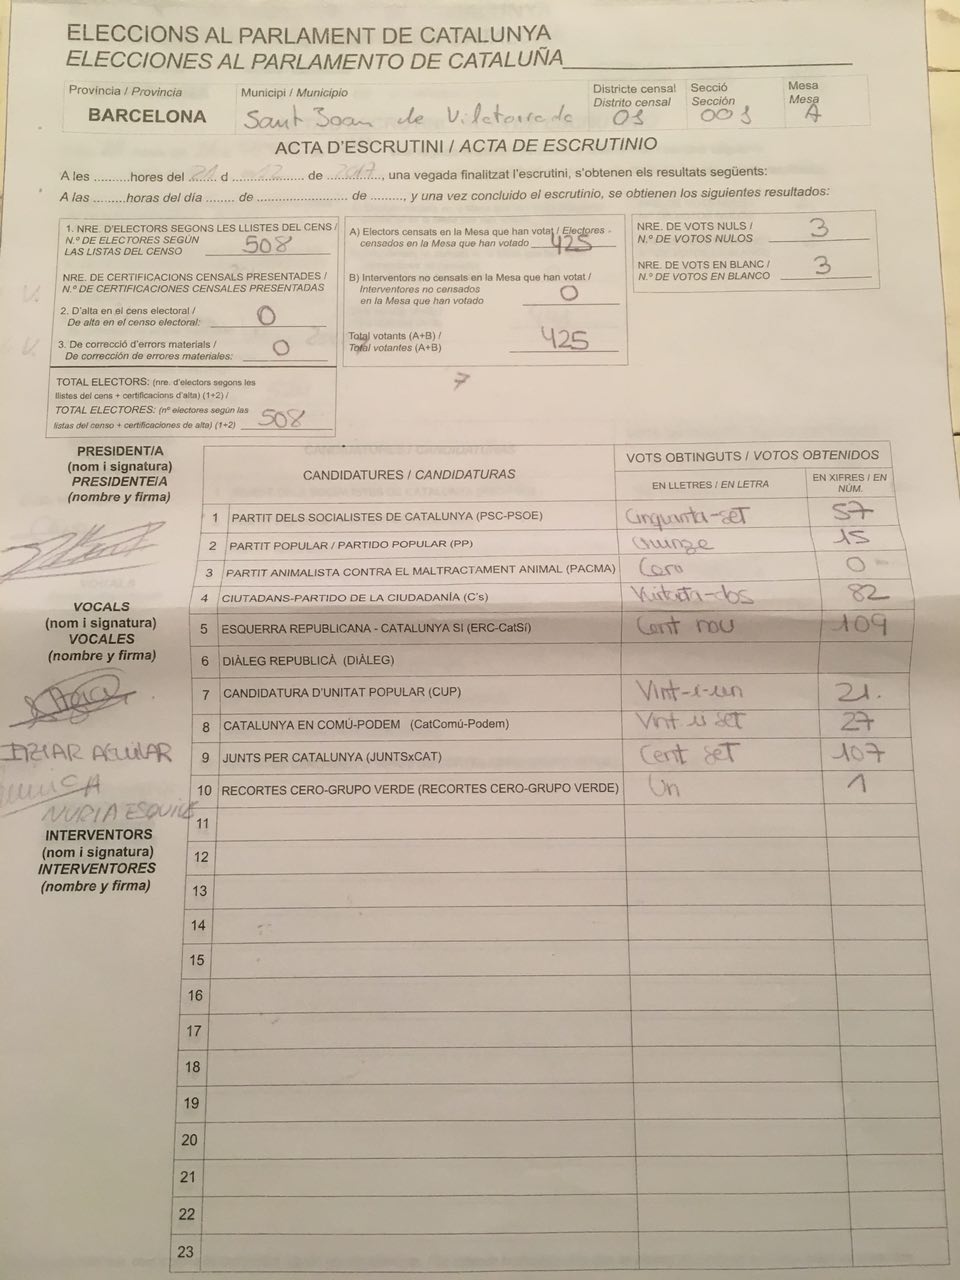 ELECCIONS AL PARLAMENT DE CATALUNYA
ELECCIONES AL PARLAMENTO DE CATALUÑA
Província / Provincia
BARCELONA
Municipi / Municipio
Sant Joan de Vilatorrada
Districte censal
Distrito censal
01
Secció
Sección
001
Mesa
Mesa
A
ACTA D'ESCRUTINI / ACTA DE ESCRUTINIO
A les .........hores del 21 d 12 de 2017, una vegada finalitzat l'escrutini, s'obtenen els resultats següents:
A las .........horas del día ........ de ......................... de ........., y una vez concluido el escrutinio, se obtienen los siguientes resultados:
1. NRE. D'ELECTORS SEGONS LES LLISTES DEL CENS /
N.º DE ELECTORES SEGÚN
LAS LISTAS DEL CENSO
508
NRE. DE CERTIFICACIONS CENSALS PRESENTADES /
N.º DE CERTIFICACIONES CENSALES PRESENTADAS
2. D'alta en el cens electoral /
De alta en el censo electoral:
0
3. De correcció d'errors materials /
De corrección de errores materiales:
0
TOTAL ELECTORS: (nre. d'electors segons les
llistes del cens + certificacions d'alta) (1+2) /
TOTAL ELECTORES: (nº electores según las
listas del censo + certificaciones de alta) (1+2)
508
A) Electors censats en la Mesa que han votat / Electores
censados en la Mesa que han votado
425
B) Interventors no censats en la Mesa que han votat /
Interventores no censados
en la Mesa que han votado
0
Total votants (A+B) /
Total votantes (A+B)
425
7
NRE. DE VOTS NULS /
N.º DE VOTOS NULOS
3
NRE. DE VOTS EN BLANC /
N.º DE VOTOS EN BLANCO
3
PRESIDENT/A
(nom i signatura)
PRESIDENTE/A
(nombre y firma)
VOCALS
(nom i signatura)
VOCALES
(nombre y firma)
ITZIAR AGUILAR
NURIA
INTERVENTORS
(nom i signatura)
INTERVENTORES
(nombre y firma)
CANDIDATURES / CANDIDATURAS
VOTS OBTINGUTS / VOTOS OBTENIDOS
EN LLETRES / EN LETRA
EN XIFRES / EN
NÚM.
1 PARTIT DELS SOCIALISTES DE CATALUNYA (PSC-PSOE) Cinquanta-set 57
2 PARTIT POPULAR / PARTIDO POPULAR (PP) Quinze 15
3 PARTIT ANIMALISTA CONTRA EL MALTRACTAMENT ANIMAL (PACMA) Cero 0
4 CIUTADANS-PARTIDO DE LA CIUDADANÍA (C's) 82
5 ESQUERRA REPUBLICANA - CATALUNYA SÍ (ERC-CatSí) Cent nou 109
6 DIÀLEG REPUBLICÀ (DIÀLEG)
7 CANDIDATURA D'UNITAT POPULAR (CUP) Vint-i-un 21.
8 CATALUNYA EN COMÚ-PODEM (CatComú-Podem) Vint-i-set 27
9 JUNTS PER CATALUNYA (JUNTSxCAT) Cent set 107
10 RECORTES CERO-GRUPO VERDE (RECORTES CERO-GRUPO VERDE) Un 1
11
12
13
14
15
16
17
18
19
20
21
22
23